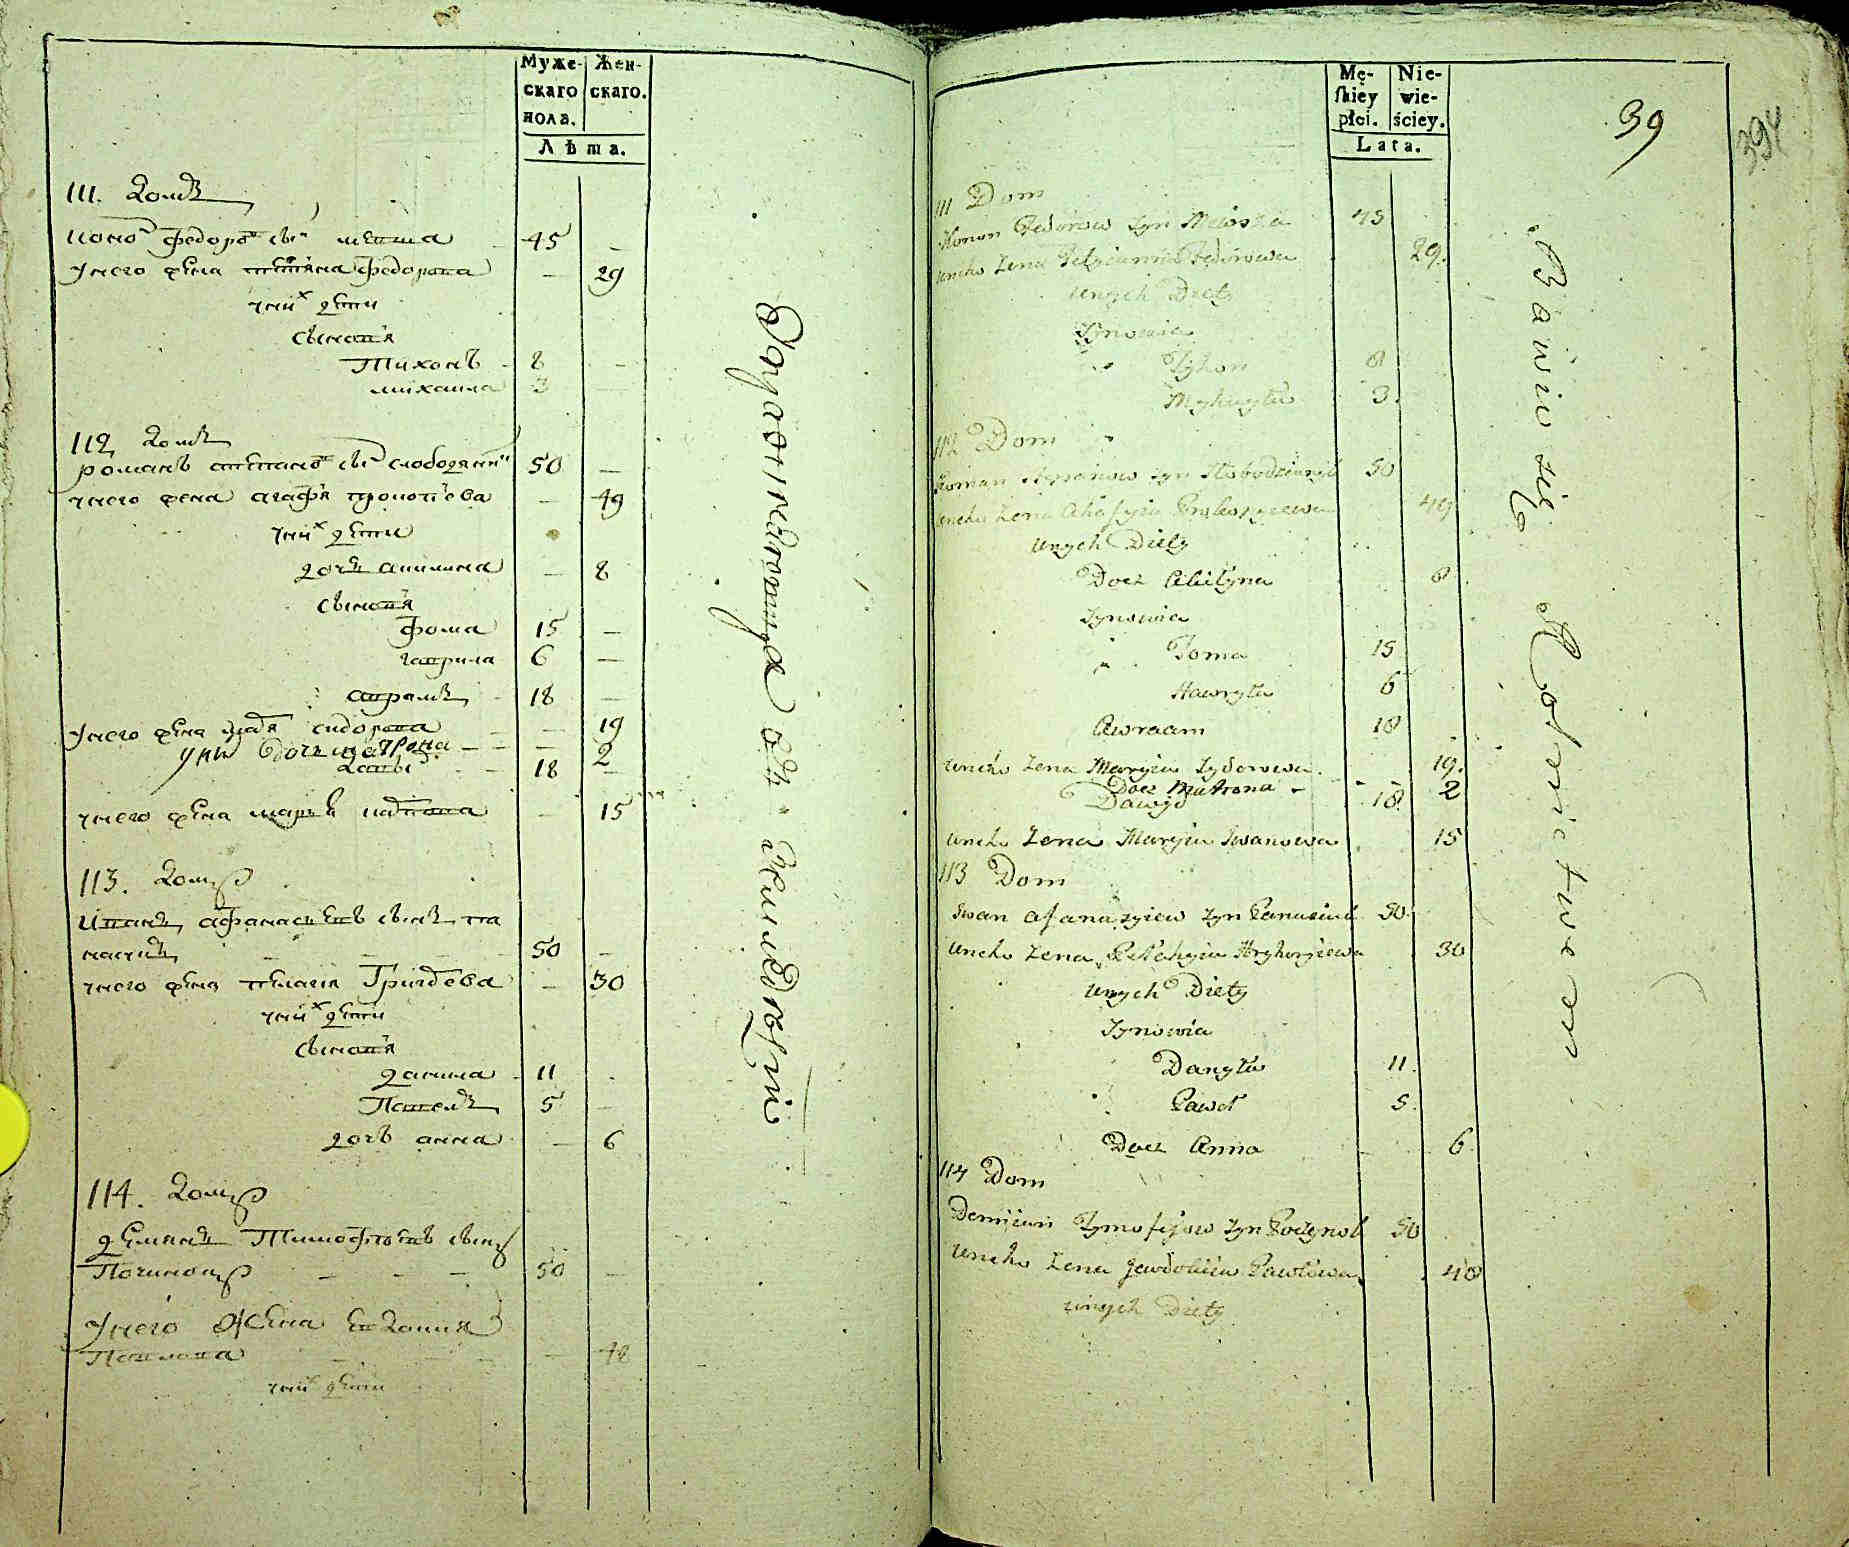 Муже-
скаго
пола.
Жен-
скаго.
Лѣта.
111. Домъ
Кононъ Федоровъ сынъ 45 —
у него жена татіяна федорова — 29
у нихъ дети
сыновя
Тихонъ 8 —
михаила 3 —
112 домъ
романъ степановъ сынъ слободяникъ 50 —
у него жена агафія прокопіева — 49
у нихъ дети
дочъ акилина — 8
сыновя
фома 15 —
гаврила 6 —
аврамъ 18 —
у него жена марія сидорова — 19
у них дочь матрона — 2
давыдъ 18 —
у него жена марья иванова — 15
113. домъ
Иванъ афанасьевъ сынъ па
насикъ 50 —
у него жена пелагія Григорева — 30
у нихъ дети
сыновя
данила 11
Павелъ 5 —
дочъ анна — 6
114. домъ
демянъ Тимофеевъ сынъ
Починокъ 50 —
У него жена Евдокия
Павлова — 48
у нихъ дети
Mę-
skiey
płci.
Nie-
wie-
ściey.
Lata.
39
394
111 Dom
Konon Fedorow syn 45
uneho Żena Tatyianna Fedorowa 29.
unych Diety
Synowia
Tyhon 8
Mykayła 3.
112 Dom
Roman Stepanow syn Słobodzianyk 50
uneho Żena Ahafyia Prokopyiewa 49
unych Diety
Docz Akilyna 8
Synowia
Foma 15
Hawryła 6
Awraam 18
uneho Żena Maryia Sydorowa 19.
Docz Matrona - 2
Dawyd 18
uneho Żena Maryia Iwanowa 15
113 Dom
Iwan Afanasyiew syn Panasiuk 50.
uneho Żena Pełahyia Hryhoryiewa 30
unych Diety
Synowia
Danyła 11.
Paweł 5.
Docz Anna 6
114 Dom
Demiian Tymofejow syn Poczynok 50
uneho Żena Jewdokiia Pawłowa 48
unych Diety
Bawią się Rolnictwem